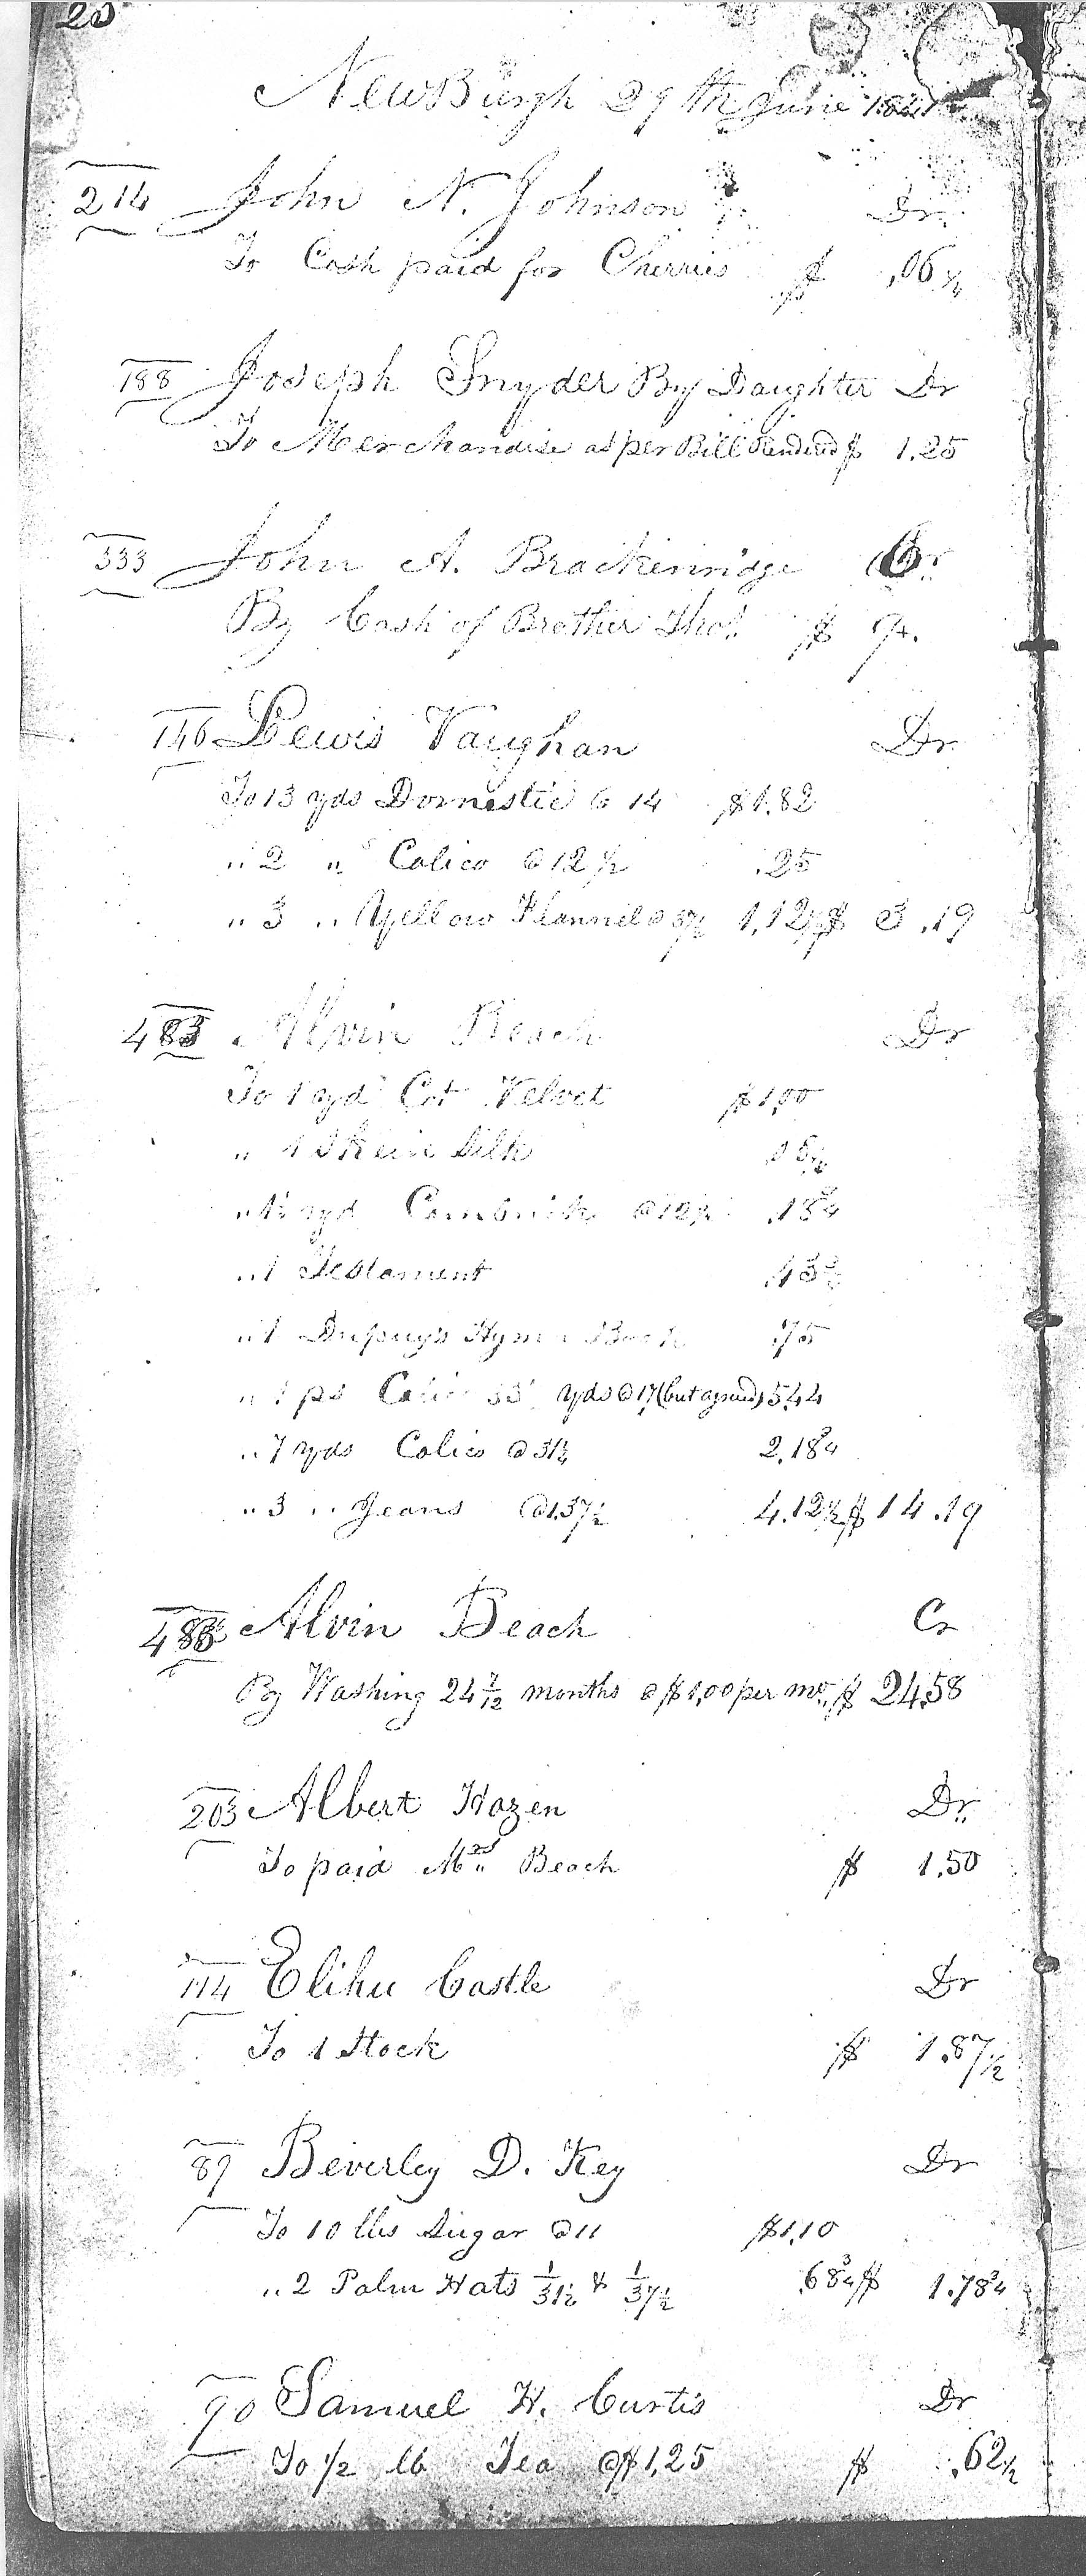 20
NewBurgh 29th June 1841
214 John N. Johnson Dr.
To Cash paid for Cherries $ .06 1/4
188 Joseph Snyder By Daughter Dr
To Merchandise as per Bill Rendered $ 1.25
333 John A. Brackenridge
By Cash of Brother Thos. $ 9.
146 Lewis Vaughan Dr
To 13 yds Domestic @ 14 $1.82
" 2 " Calico @ 12 1/2 .25
" 3 " Yellow Flannel @ 37 1/2 1.12 1/2 $ 3.19
483 Alvin Beach Dr
To 1 yd Cot Velvet $1.00
" 1 Skein Silk
" 1 1/2 yd Cambrick @ 12 1/2 .18 3/4
" 1 Testament .43 3/4
" 1 Dupuy's Hymn Book .75
" 1 ps Calico 33 yds @ 17 (but agreed) 5.44
" 7 yds Calico @ 31 1/4 2.18 3/4
" 3 " Jeans @ 1.37 1/2 4.12 1/2 $ 14.19
483 Alvin Beach Cr
By Washing 24 7/12 months @ $1,00 per mo. $ 24.58
203 Albert Hazen Dr.
To paid Mrs Beach $ 1.50
114 Elihu Castle Dr
To 1 Stock $ 1.87 1/2
89 Beverley D. Key Dr
To 10 lbs Sugar @ 11 $1.10
" 2 Palm Hats 1/31 1/4 & 1/37 1/2 .68 3/4 $ 1.78 3/4
90 Samuel H. Curtis Dr
To 1/2 lb Tea @ $1,25 $ .62 1/2